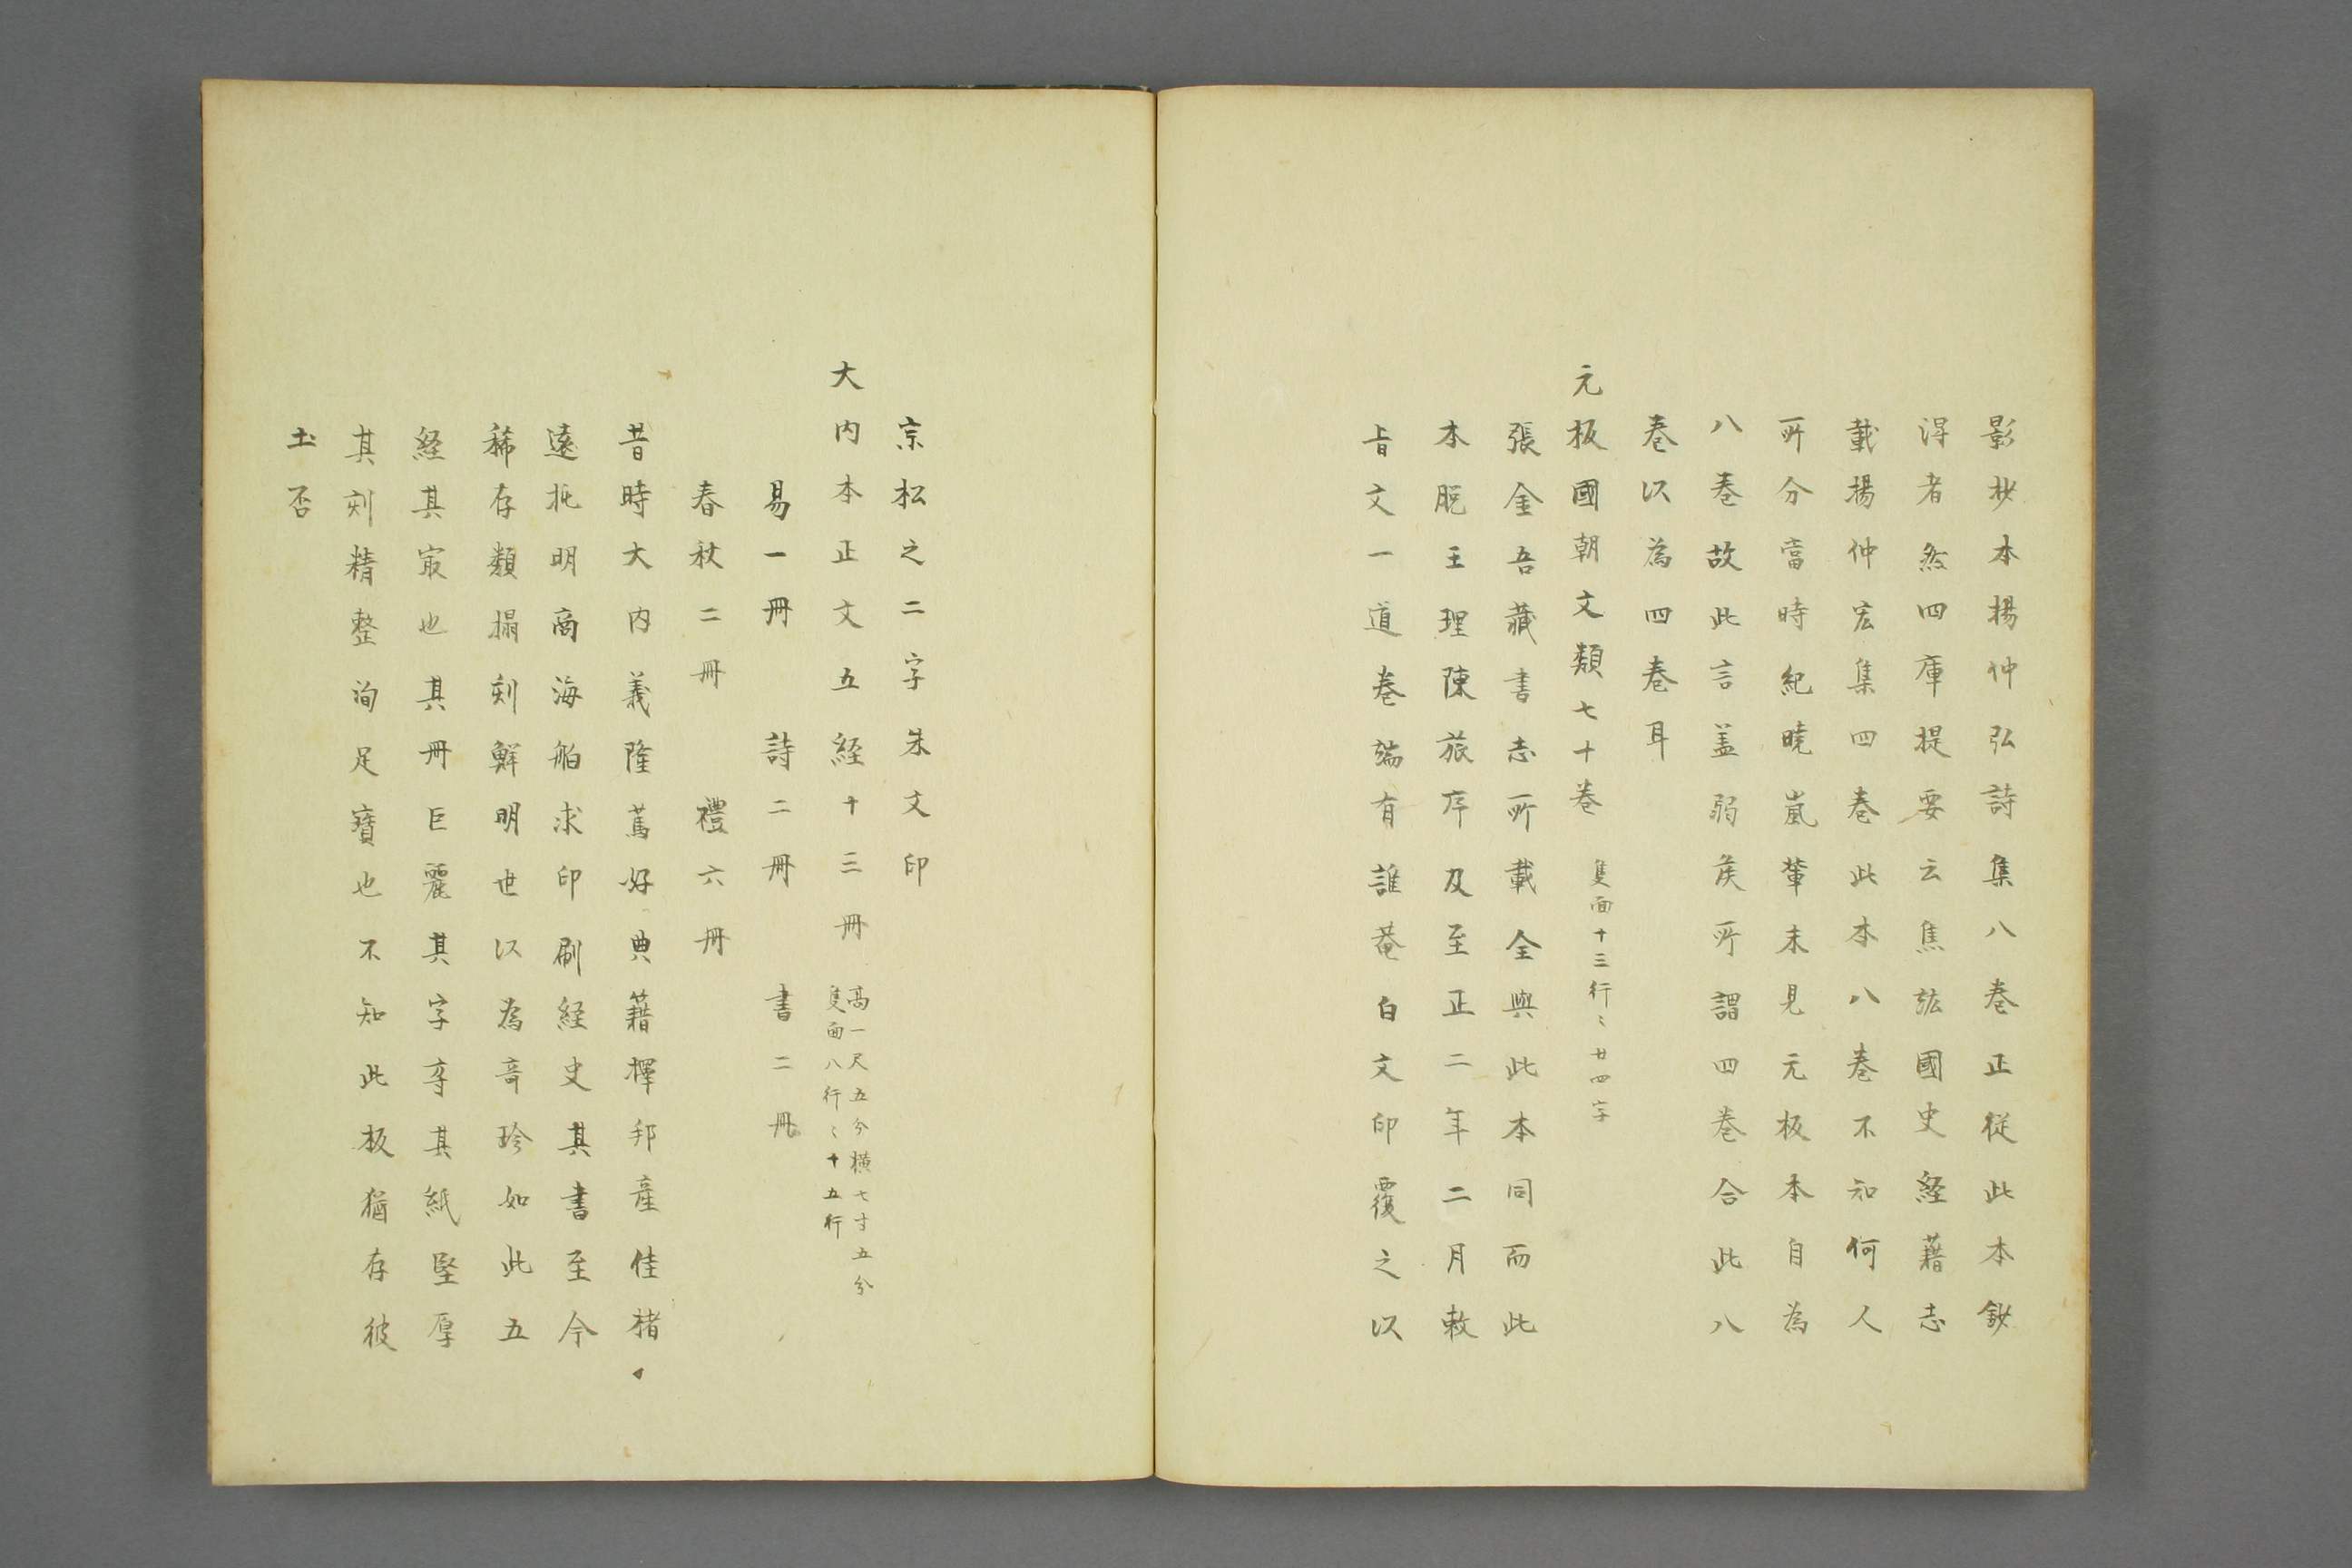 影抄本楊仲弘詩集八卷正從此本鈔
淂者然四庫提要云焦竑國史経籍志
載楊仲宏集四卷此本八卷不知何人
所分當時紀曉嵐輩未見元板本自為
八卷故此言盖弱矦所謂四卷合此八
卷以為四卷耳
元板國朝文類七十卷 隻面十三行〻廿四字
張金吾藏書志所載全與此本同而此
本脱王理陳旅序及至正二年二月敕
旨文一道卷端有誰菴白文印覆之以
宗松之二字朱文印
大内本正文五経十三冊 高一尺五分横七寸五分
隻面八行〻十五行
易一冊 詩二冊 書二冊
春秋二冊 禮六冊
昔時大内義隆篤好典籍擇邦產佳楮
遠托明商海舶求印刷経史其書至今
稀存類搨刻鮮明世以為竒珍如此五
経其冣也其冊巨麗其字夲其紙堅厚
其刻精整洵足寶也不知此板猶存彼
土否